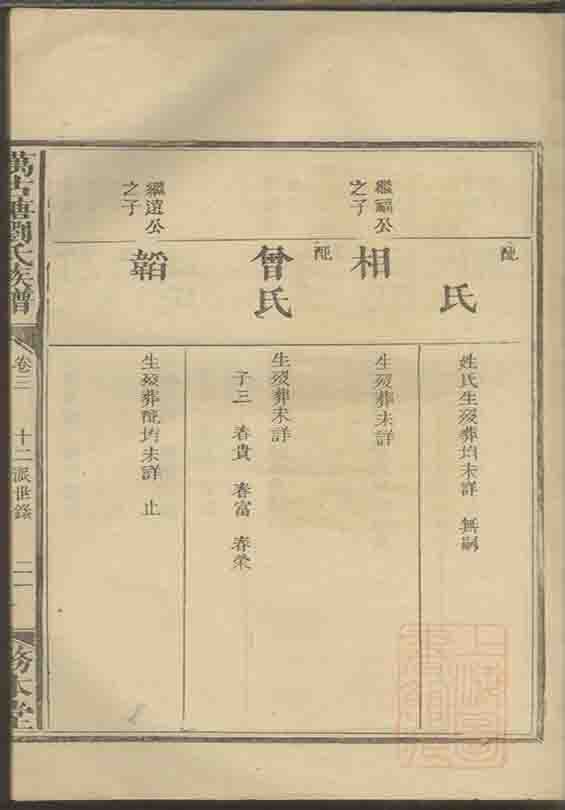 配
氏
姓氏生歿葬均未詳 無嗣
繼福公
之子
相
生歿葬未詳
配
曾氏
生歿葬未詳
子三 春貴 春富 春榮
繼遠公
之子
韜
生歿葬配均未詳 止
萬古塘劉氏族譜
卷三 十二派世錄 二一
務本堂
上海圖
書館藏